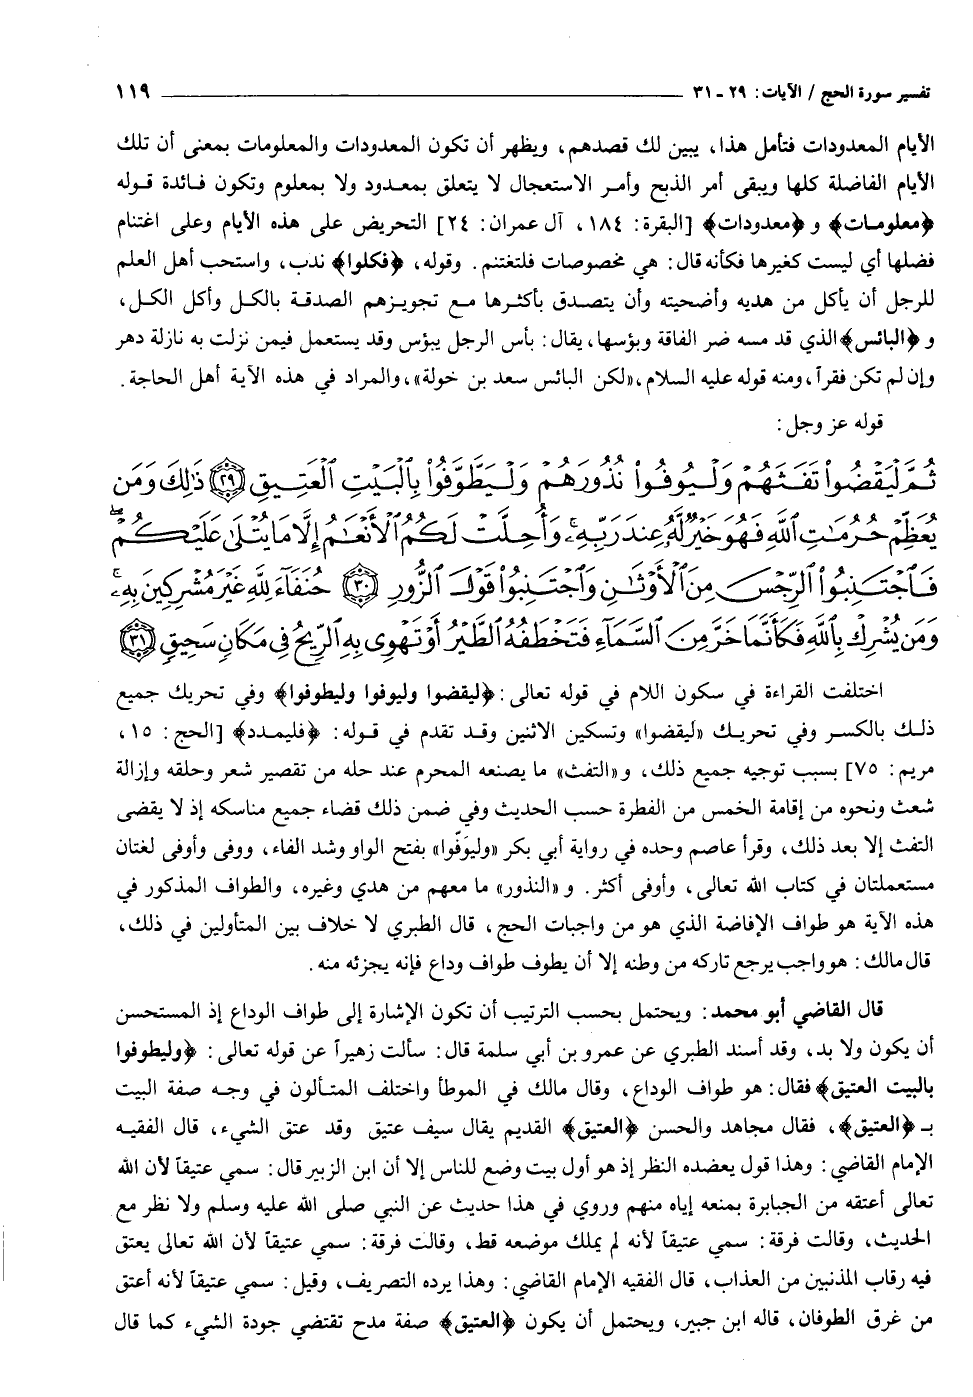 تفسير سورة الحج / الآيات: ٢٩ - ٣١ ١١٩
الأيام المعدودات فتأمل هذا، يبين لك قصدهم، ويظهر أن تكون المعدودات والمعلومات بمعنى أن تلك
الأيام الفاضلة كلها ويبقى أمر الذبح وأمر الاستعجال لا يتعلق بمعدود ولا بمعلوم وتكون فائدة قوله
﴿معلومات﴾ و ﴿معدودات﴾ [البقرة: ١٨٤، آل عمران: ٢٤] التحريض على هذه الأيام وعلى اغتنام
فضلها أي ليست كغيرها فكأنه قال: هي مخصوصات فلتغتنم. وقوله، ﴿فكلوا﴾ ندب، واستحب أهل العلم
للرجل أن يأكل من هديه وأضحيته وأن يتصدق بأكثرها مع تجويزهم الصدقة بالكل وأكل الكل،
و ﴿البائس﴾ الذي قد مسه ضر الفاقة وبؤسها، يقال: بأس الرجل يبؤس وقد يستعمل فيمن نزلت به نازلة دهر
وإن لم تكن فقراً، ومنه قوله عليه السلام، «لكن البائس سعد بن خولة»، والمراد في هذه الآية أهل الحاجة.
قوله عز وجل:
ثُمَّ لْيَقْضُوا۟ تَفَثَهُمْ وَلْيُوفُوا۟ نُذُورَهُمْ وَلْيَطَّوَّفُوا۟ بِٱلْبَيْتِ ٱلْعَتِيقِ ﴿٢٩﴾ ذَٰلِكَ وَمَن
يُعَظِّمْ حُرُمَٰتِ ٱللَّهِ فَهُوَ خَيْرٌ لَّهُۥ عِندَ رَبِّهِۦ وَأُحِلَّتْ لَكُمُ ٱلْأَنْعَٰمُ إِلَّا مَا يُتْلَىٰ عَلَيْكُمْ ۖ
فَٱجْتَنِبُوا۟ ٱلرِّجْسَ مِنَ ٱلْأَوْثَٰنِ وَٱجْتَنِبُوا۟ قَوْلَ ٱلزُّورِ ﴿٣٠﴾ حُنَفَآءَ لِلَّهِ غَيْرَ مُشْرِكِينَ بِهِۦ ۚ
وَمَن يُشْرِكْ بِٱللَّهِ فَكَأَنَّمَا خَرَّ مِنَ ٱلسَّمَآءِ فَتَخْطَفُهُ ٱلطَّيْرُ أَوْ تَهْوِى بِهِ ٱلرِّيحُ فِى مَكَانٍ سَحِيقٍ ﴿٣١﴾
اختلفت القراءة في سكون اللام في قوله تعالى: ﴿ليقضوا وليوفوا وليطوفوا﴾ وفي تحريك جميع
ذلك بالكسر وفي تحريك «ليقضوا» وتسكين الاثنين وقد تقدم في قوله: ﴿فليمدد﴾ [الحج: ١٥،
مريم: ٧٥] بسبب توجيه جميع ذلك، و«التفث» ما يصنعه المحرم عند حله من تقصير شعر وحلقه وإزالة
شعث ونحوه من إقامة الخمس من الفطرة حسب الحديث وفي ضمن ذلك قضاء جميع مناسكه إذ لا يقضى
التفث إلا بعد ذلك، وقرأ عاصم وحده في رواية أبي بكر «وليوَفّوا» بفتح الواو وشد الفاء، ووفى وأوفى لغتان
مستعملتان في كتاب الله تعالى، وأوفى أكثر. و«النذور» ما معهم من هدي وغيره، والطواف المذكور في
هذه الآية هو طواف الإفاضة الذي هو من واجبات الحج، قال الطبري لا خلاف بين المتأولين في ذلك،
قال مالك: هو واجب يرجع تاركه من وطنه إلا أن يطوف طواف وداع فإنه يجزئه منه.
قال القاضي أبو محمد: ويحتمل بحسب الترتيب أن تكون الإشارة إلى طواف الوداع إذ المستحسن
أن يكون ولا بد، وقد أسند الطبري عن عمرو بن أبي سلمة قال: سألت زهيراً عن قوله تعالى: ﴿وليطوفوا
بالبيت العتيق﴾ فقال: هو طواف الوداع، وقال مالك في الموطأ واختلف المتـألون في وجه صفة البيت
بـ ﴿العتيق﴾، فقال مجاهد والحسن ﴿العتيق﴾ القديم يقال سيف عتيق وقد عتق الشيء، قال الفقيه
الإمام القاضي: وهذا قول يعضده النظر إذ هو أول بيت وضع للناس إلا أن ابن الزبير قال: سمي عتيقاً لأن الله
تعالى أعتقه من الجبابرة بمنعه إياه منهم وروي في هذا حديث عن النبي صلى الله عليه وسلم ولا نظر مع
الحديث، وقالت فرقة: سمي عتيقاً لأنه لم يملك موضعه قط، وقالت فرقة: سمي عتيقاً لأن الله تعالى يعتق
فيه رقاب المذنبين من العذاب، قال الفقيه الإمام القاضي: وهذا يرده التصريف، وقيل: سمي عتيقاً لأنه أعتق
من غرق الطوفان، قاله ابن جبير، ويحتمل أن يكون ﴿العتيق﴾ صفة مدح تقتضي جودة الشيء كما قال